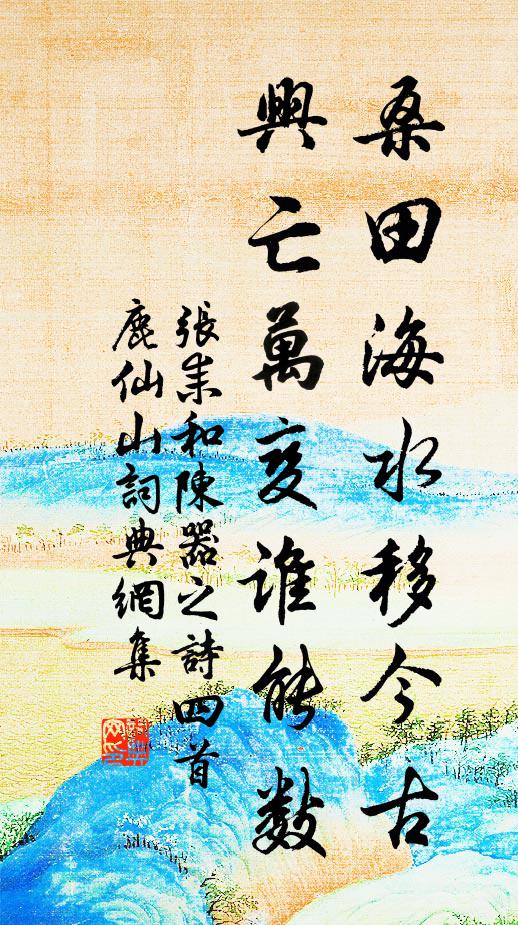 桑田海水移今古
興亡萬变谁能数
張耒和陳器之詩四首
鹿仙山詞典網集